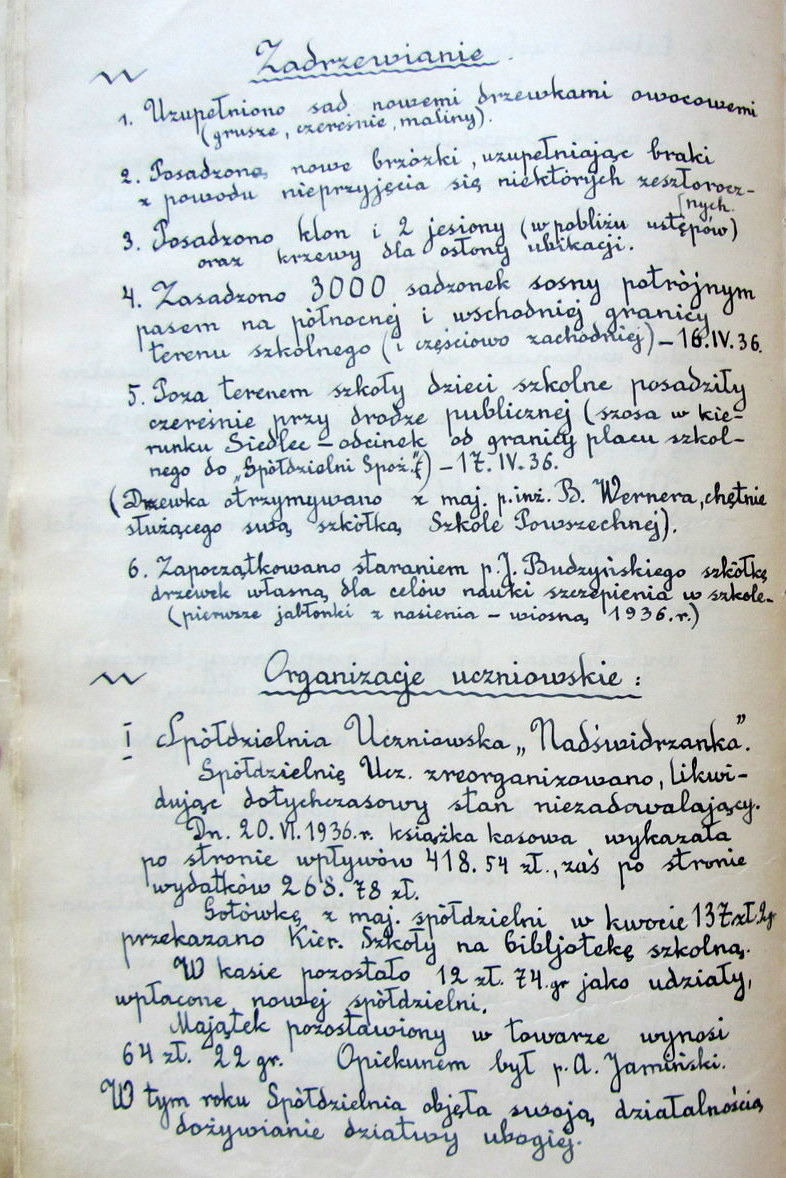 Zadrzewianie.
1. Uzupełniono sad nowemi drzewkami owocowemi
(grusze, czereśnie, maliny).
2. Posadzono nowe brzózki, uzupełniając braki
z powodu nieprzyjęcia się niektórych zeszłorocz-
nych.
3. Posadzono klon i 2 jesiony (w pobliżu ustępów)
oraz krzewy dla osłony ubikacji.
4. Zasadzono 3000 sadzonek sosny potrójnym
pasem na północnej i wschodniej granicy
terenu szkolnego (i częściowo zachodniej) – 16.IV.36.
5. Poza terenem szkoły dzieci szkolne posadziły
czereśnie przy drodze publicznej (szosa w kie-
runku Siedlec – odcinek od granicy placu szkol-
nego do „Spółdzielni Spoż.") – 17.IV.36.
(Drzewka otrzymywano z maj. p. inż. B. Wernera, chętnie
służącego swą szkółką Szkole Powszechnej).
6. Zapoczątkowano staraniem p. J. Budzyńskiego szkółkę
drzewek własną dla celów nauki szczepienia w szkole-
(pierwsze jabłonki z nasienia – wiosną 1936.r.)
Organizacje uczniowskie:
I Spółdzielnia Uczniowska „Nadświdrzanka".
Spółdzielnię Ucz. zreorganizowano, likwi-
dując dotychczasowy stan niezadowalający.
Dn. 20.VI.1936.r. książka kasowa wykazała
po stronie wpływów 418.54 zł., zaś po stronie
wydatków 268.78 zł.
Gotówkę z maj. spółdzielni w kwocie 137 zł. 2 gr
przekazano Kier. Szkoły na bibljotekę szkolną.
W kasie pozostało 12 zł. 74.gr jako udziały,
wpłacone nowej spółdzielni.
Majątek pozostawiony w towarze wynosi
64 zł. 22 gr. Opiekunem był p. A. Jamiński.
W tym roku Spółdzielnia objęła swoją działalnością
dożywianie dziatwy ubogiej.